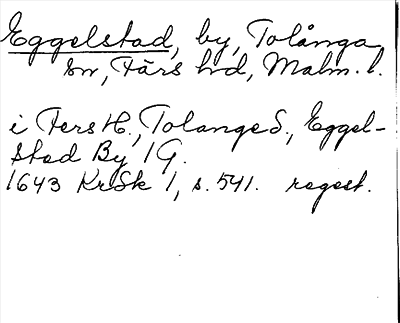 Eggelstad, by, Tolånga
sn, Färs hd, Malm. l.
i Fers H., Tolange S., Eggel-
stad By 1 G.
1643 KrSk 1, s. 541. regest.